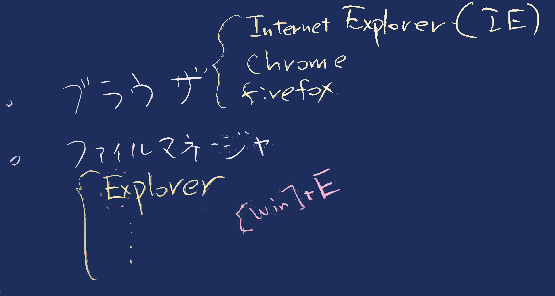 Internet Explorer (IE)
・ ブラウザ Chrome
firefox
。 ファイルマネージャ
Explorer
[Win]+E